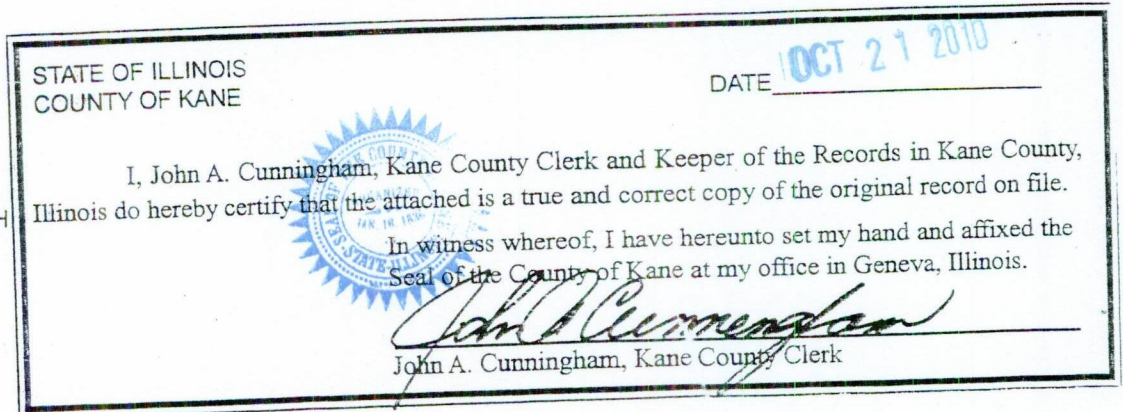 STATE OF ILLINOIS
COUNTY OF KANE
DATE OCT 21 2010
I, John A. Cunningham, Kane County Clerk and Keeper of the Records in Kane County,
Illinois do hereby certify that the attached is a true and correct copy of the original record on file.
In witness whereof, I have hereunto set my hand and affixed the
Seal of the County of Kane at my office in Geneva, Illinois.
John A Cunningham
John A. Cunningham, Kane County Clerk
SEAL OF COUNTY
ORGANIZED
JAN. 16, 1836
STATE ILLINOIS